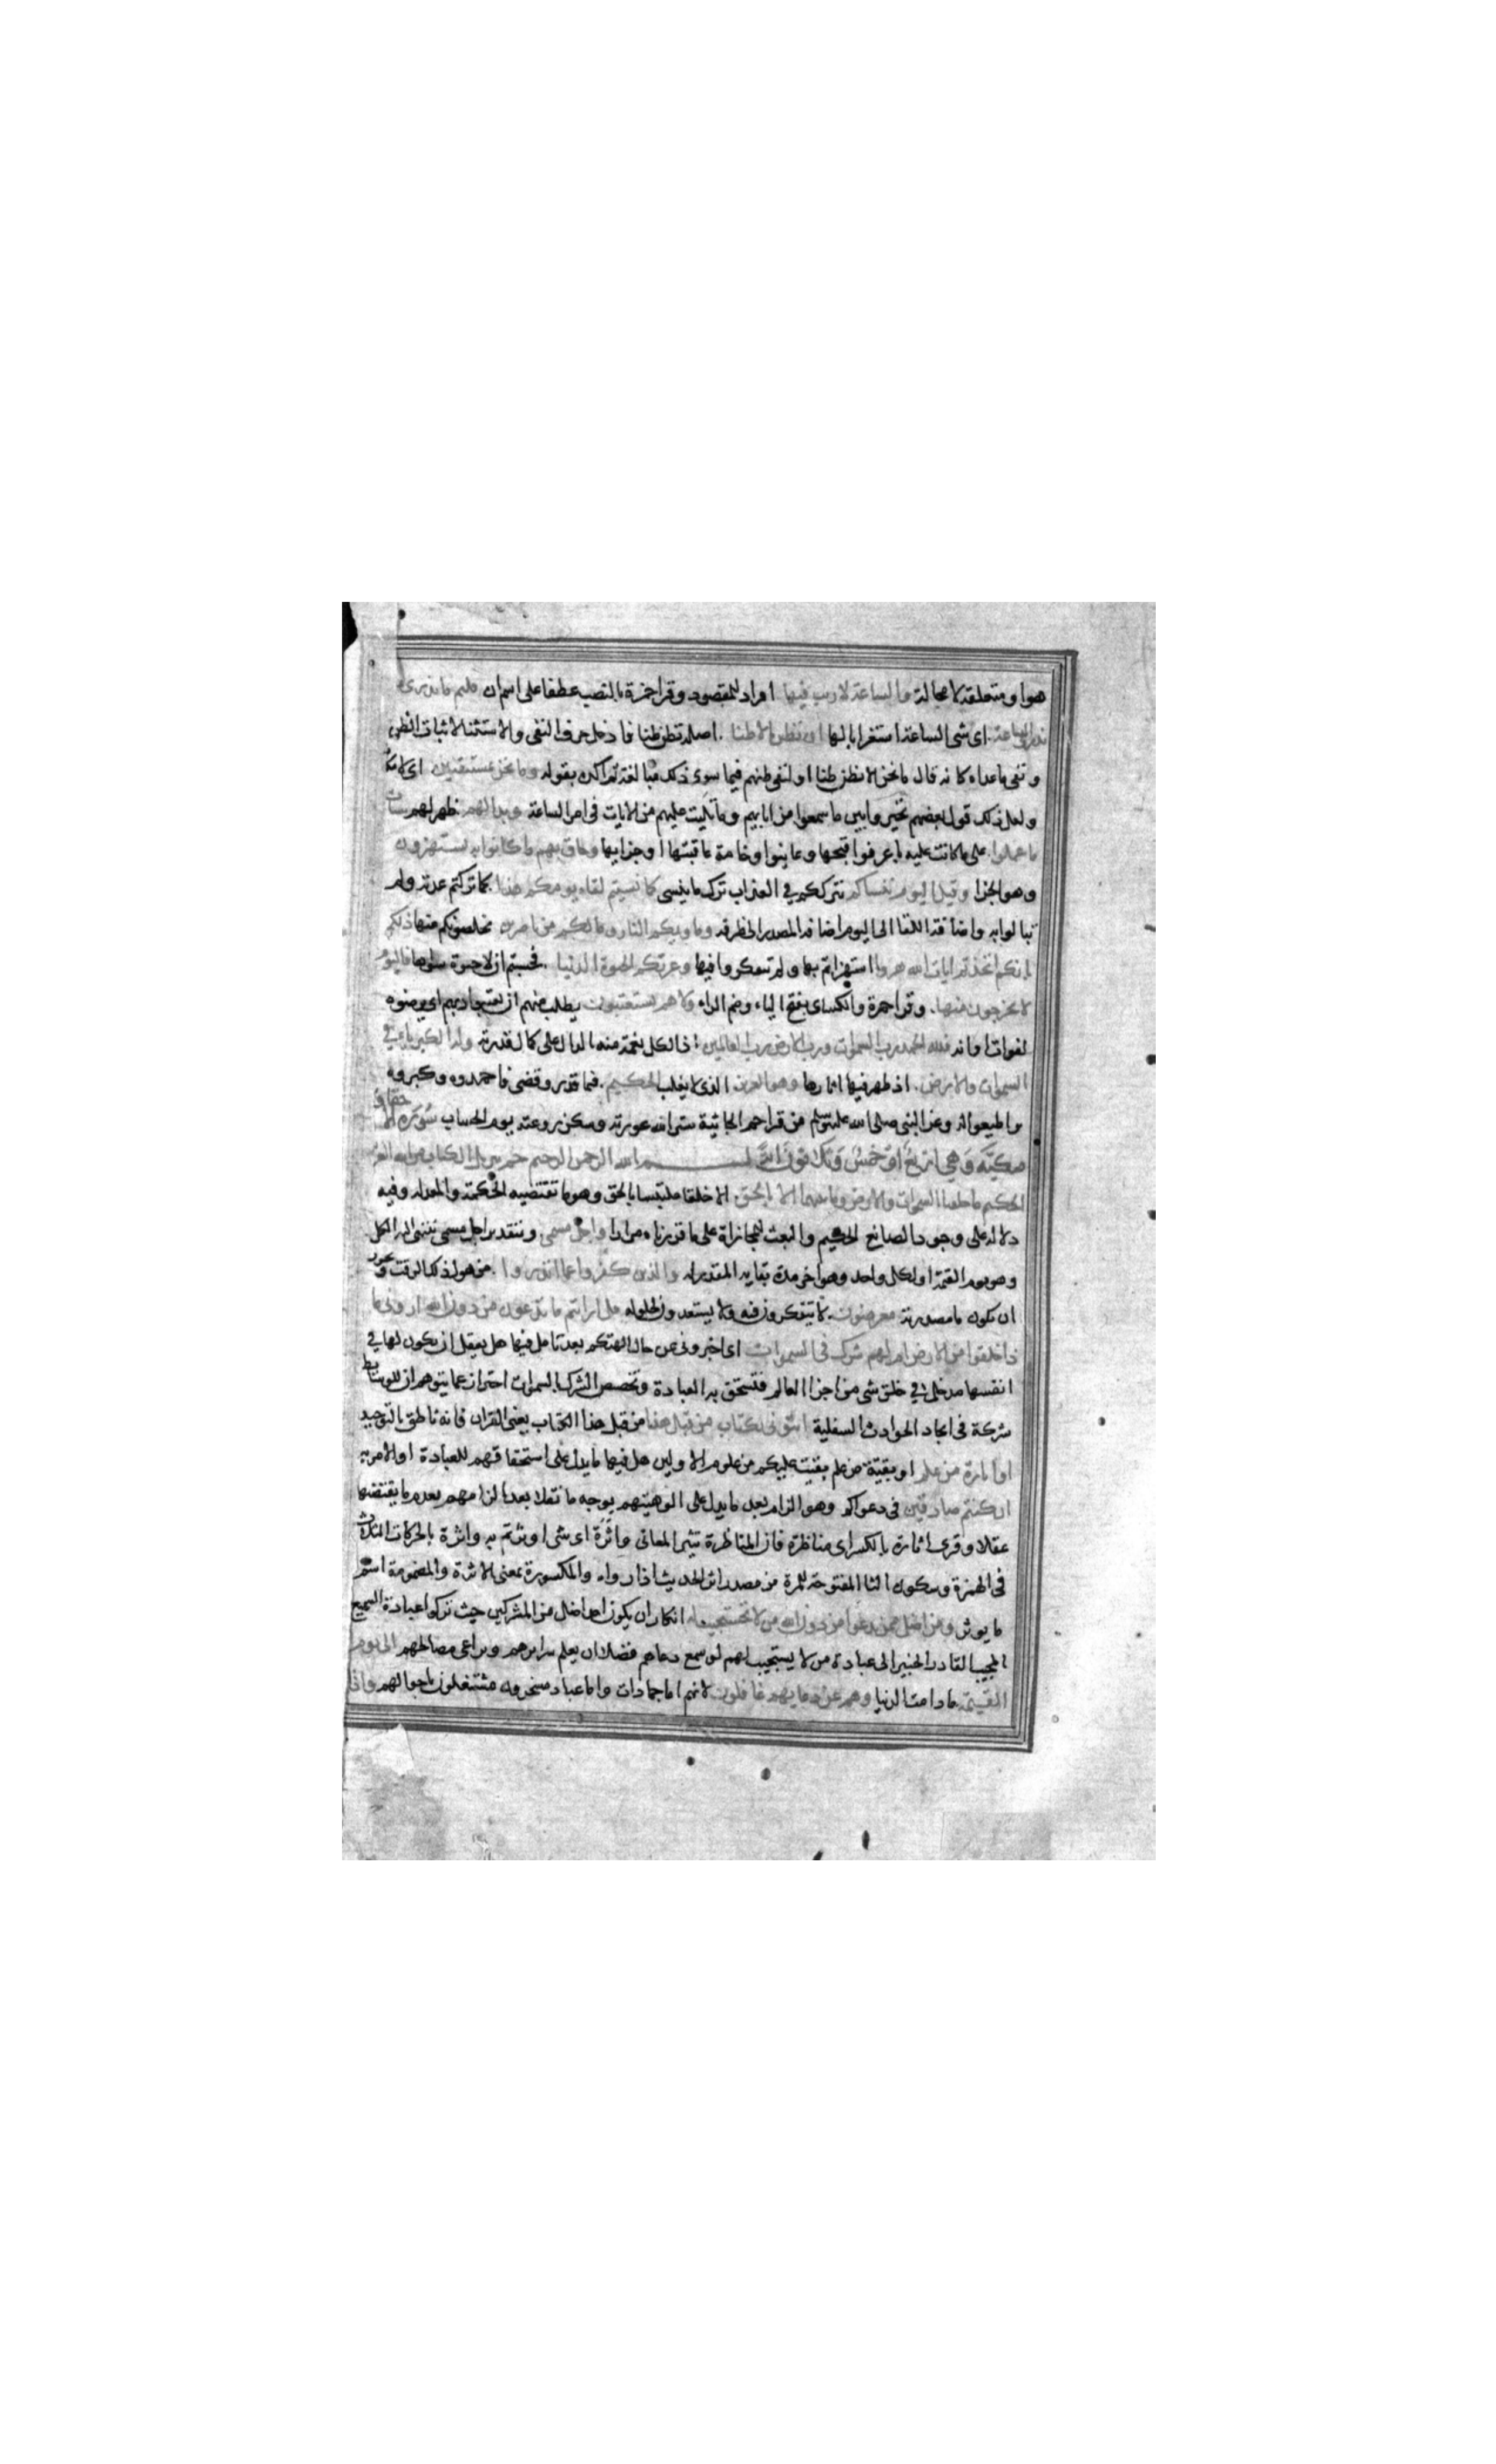 هو او متعلقه لا محالة والساعة لا ريب فيها افراد للمقصود وقرا حمزة بالنصب عطفا على اسم ان قلتم ما ندرى
ما الساعة اى شى الساعة استغرابا لها ان نظن الا ظنا اصله نظن ظنا فادخل حرف النفى والاستثنا لاثبات الظن
ونفى ما عداه كانه قال ما نحن الا نظن ظنا او لنفى ظنهم فيما سوى ذلك مبالغة ثم اكده بقوله وما نحن بمستيقنين اى لامكانه
ولعل ذلك قول بعضهم تحيروا بين ما سمعوا من ابايهم وما تليت عليهم من الايات فى امر الساعة وبدا لهم ظهر لهم سيات
ما عملوا على ما كانت عليه بان عرفوا قبحها وعاينوا وخامة عاقبتها او جزايها وحاق بهم ما كانوا به يستهزون
وهو الجزا وقيل اليوم ننساكم نترككم في العذاب ترك ما ينسى كما نسيتم لقاء يومكم هذا كما تركتم عدته ولم
تبالوا به واضافة اللقا الى اليوم اضافة المصدر الى ظرفه وماويكم النار وما لكم من ناصرين يخلصونكم منها ذلكم
بانكم اتخذتم ايات الله هزوا استهزاتم بها ولم تتفكروا فيها وغرتكم الحيوة الدنيا فحسبتم ان لا حيوة سواها فاليوم
لا يخرجون منها وقرا حمزة والكساى بفتح الياء وضم الراء ولا هم يستعتبون يطلب منهم ان يعتبوا ربهم اى يرضوه
لفوات اوانه فلله الحمد رب السموات ورب الارض رب العالمين اذ الكل نعمة منه دال على كمال قدرته وله الكبرياء في
السموات والارض اذ ظهر فيها اثارها وهو العزيز الذى لا يغلب الحكيم فيما قدر وقضى فاحمدوه وكبروه
واطيعوا له وعن النبى صلى الله عليه وسلم من قرا حم الجاثية ستر الله عورته وسكن روعته يوم الحساب سورة الاحقاف
مكية وهي اربع او خمس وثلاثون اية بسم الله الرحمن الرحيم حم تنزيل الكتاب من الله العزيز
الحكيم ما خلقنا السموات والارض وما بينهما الا بالحق الا خلقا ملتبسا بالحق وهو ما تقتضيه الحكمة والمعدلة وفيه
دلالة على وجود الصانع الحكيم والبعث للمجازاة على ما قررناه مرارا واجل مسمى وبتقدير اجل مسمى ينتهى اليه الكل
وهو يوم القيمة او لكل واحد وهو اخر مدة بقايه المقدرة له والذين كفروا عما انذروا من هول ذلك الوقت ويجوز
ان تكون ما مصدرية معرضون لا يتفكرون فيه ولا يستعدون لحلوله قل ارايتم ما تدعون من دون الله ارونى ما
ذا خلقوا من الارض ام لهم شرك فى السموات اى اخبرونى عن حال الهتكم بعد تامل فيها هل يعقل ان يكون لها في
انفسها مدخل في خلق شى من اجزا العالم فتستحق به العبادة وتخصيص الشرك بالسموات احتراز عما يتوهم ان للوسايط
شركة فى ايجاد الحوادث السفلية ائتونى بكتاب من قبل هذا من قبل هذا الكتاب يعنى القران فانه ناطق بالتوحيد
او اثارة من علم او بقية من علم بقيت عليكم من علوم الاولين هل فيها ما يدل على استحقاقهم للعبادة او الامر به
ان كنتم صادقين في دعواكم وهو الزام بعدم ما يدل على الوهيتهم بوجه ما نقلا بعد الزامهم بعدم ما يقتضيها
عقلا وقرى اثارة بالكسر اى مناظرة فان المناظرة تثير المعانى واثرة اى شى اوثرتم به واثرة بالحركات الثلاث
فى الهمزة وسكون الثا المفتوحة للمرة من مصدر اثر الحديث اذا رواه والمكسورة بمعنى الاثرة والمضمومة اسم
ما يوثر ومن اضل ممن يدعوا من دون الله من لا يستجيب له انكار ان يكون احد اضل من المشركين حيث تركوا عبادة السميع
المجيب القادر الخبير الى عبادة من لا يستجيب لهم لو سمع دعاهم فضلا ان يعلم سرايرهم ويراعى مصالحهم الى يوم
القيمة ما دامت الدنيا وهم عن دعايهم غافلون لانهم اما جمادات واما عباد مسخرون مشتغلون باحوالهم واذا